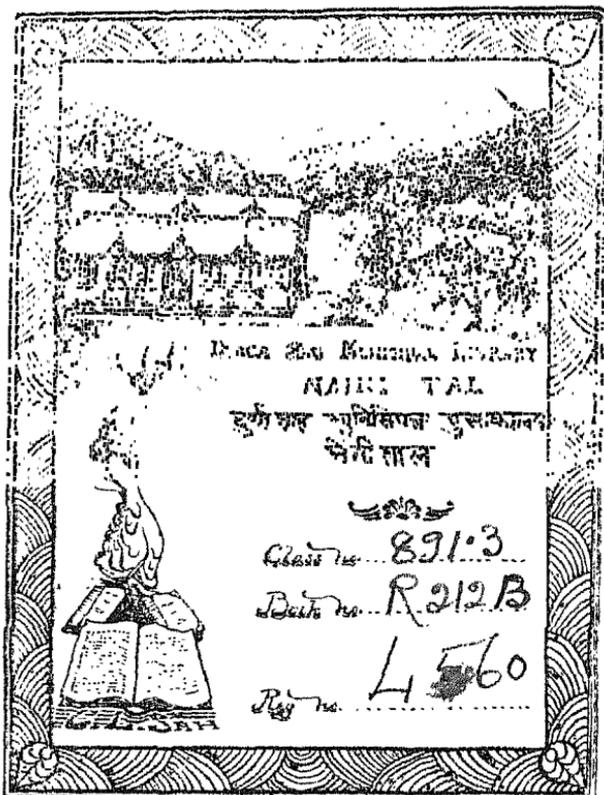 DURGA SAH MUNICIPAL LIBRARY
NAINI TAL
दुर्गा साह म्युनिसिपल पुस्तकालय
नैनी ताल
Class no. 891.3
Book no. R 212 B
Reg no. 4560